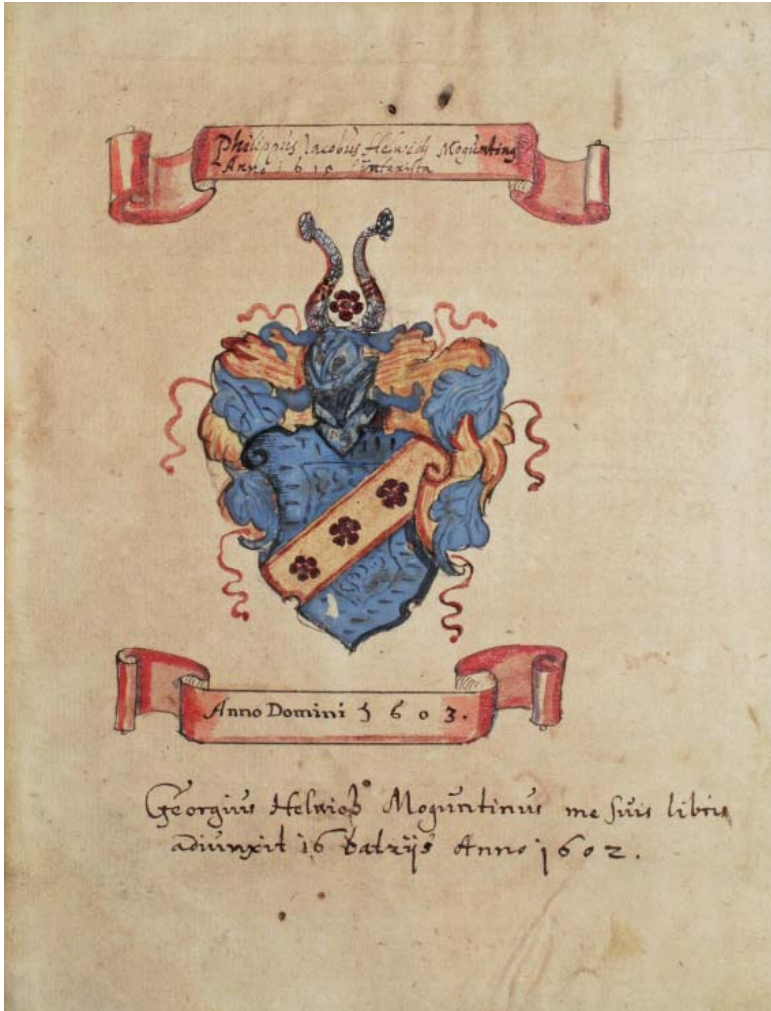 Philippus Jacobus Helwich Mogunting
Anno 1610
Anno Domini 1603.
Georgius Helwich Moguntinus me suis libris
adiunxit 16 batzijs Anno 1602.